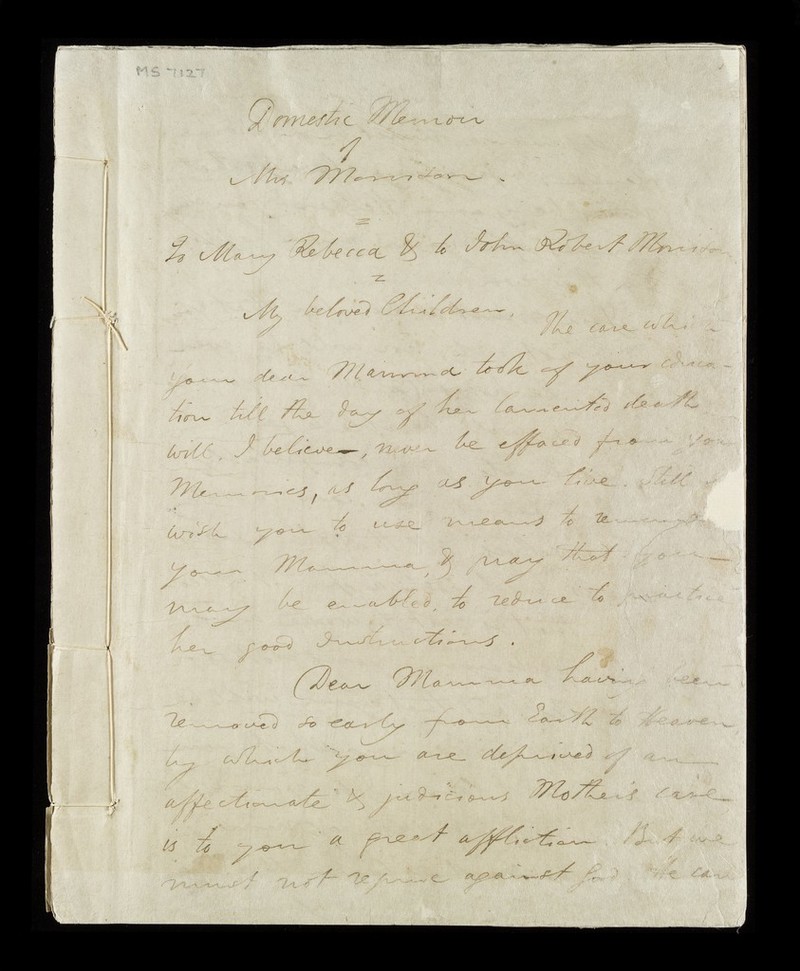 MS 7127
Domestic Memoir
of
Mrs Morrison.
To Mary Rebecca & to John Robert Morrison
My beloved Children. The care which
your dear Mamma took of your educa-
tion till the day of her lamented death
will, I believe, never be effaced from your
Memories, as long as you live. Still I
wish you to use means to remember
your Mamma, & pray that you
may be enabled, to reduce to practice
her good Instructions.
Dear Mamma having been
removed so early from Earth to Heaven
by which you are deprived of an
affectionate & judicious Mother's care
is to you a great affliction. But we
must not repine against God. He can